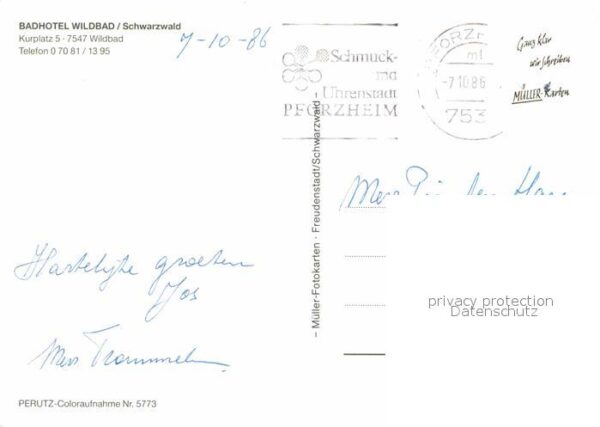 BADHOTEL WILDBAD / Schwarzwald
Kurplatz 5 · 7547 Wildbad
Telefon 0 70 81 / 13 95
7-10-86
Schmuck-
und
Uhrenstadt
PFORZHEIM
PFORZH
ml
-7.10.86
753
Ganz klar
wir schreiben
MÜLLER-Karten
– Müller-Fotokarten · Freudenstadt/Schwarzwald –
Hartelijke groeten
Jos
Mevr
privacy protection
Datenschutz
PERUTZ-Coloraufnahme Nr. 5773